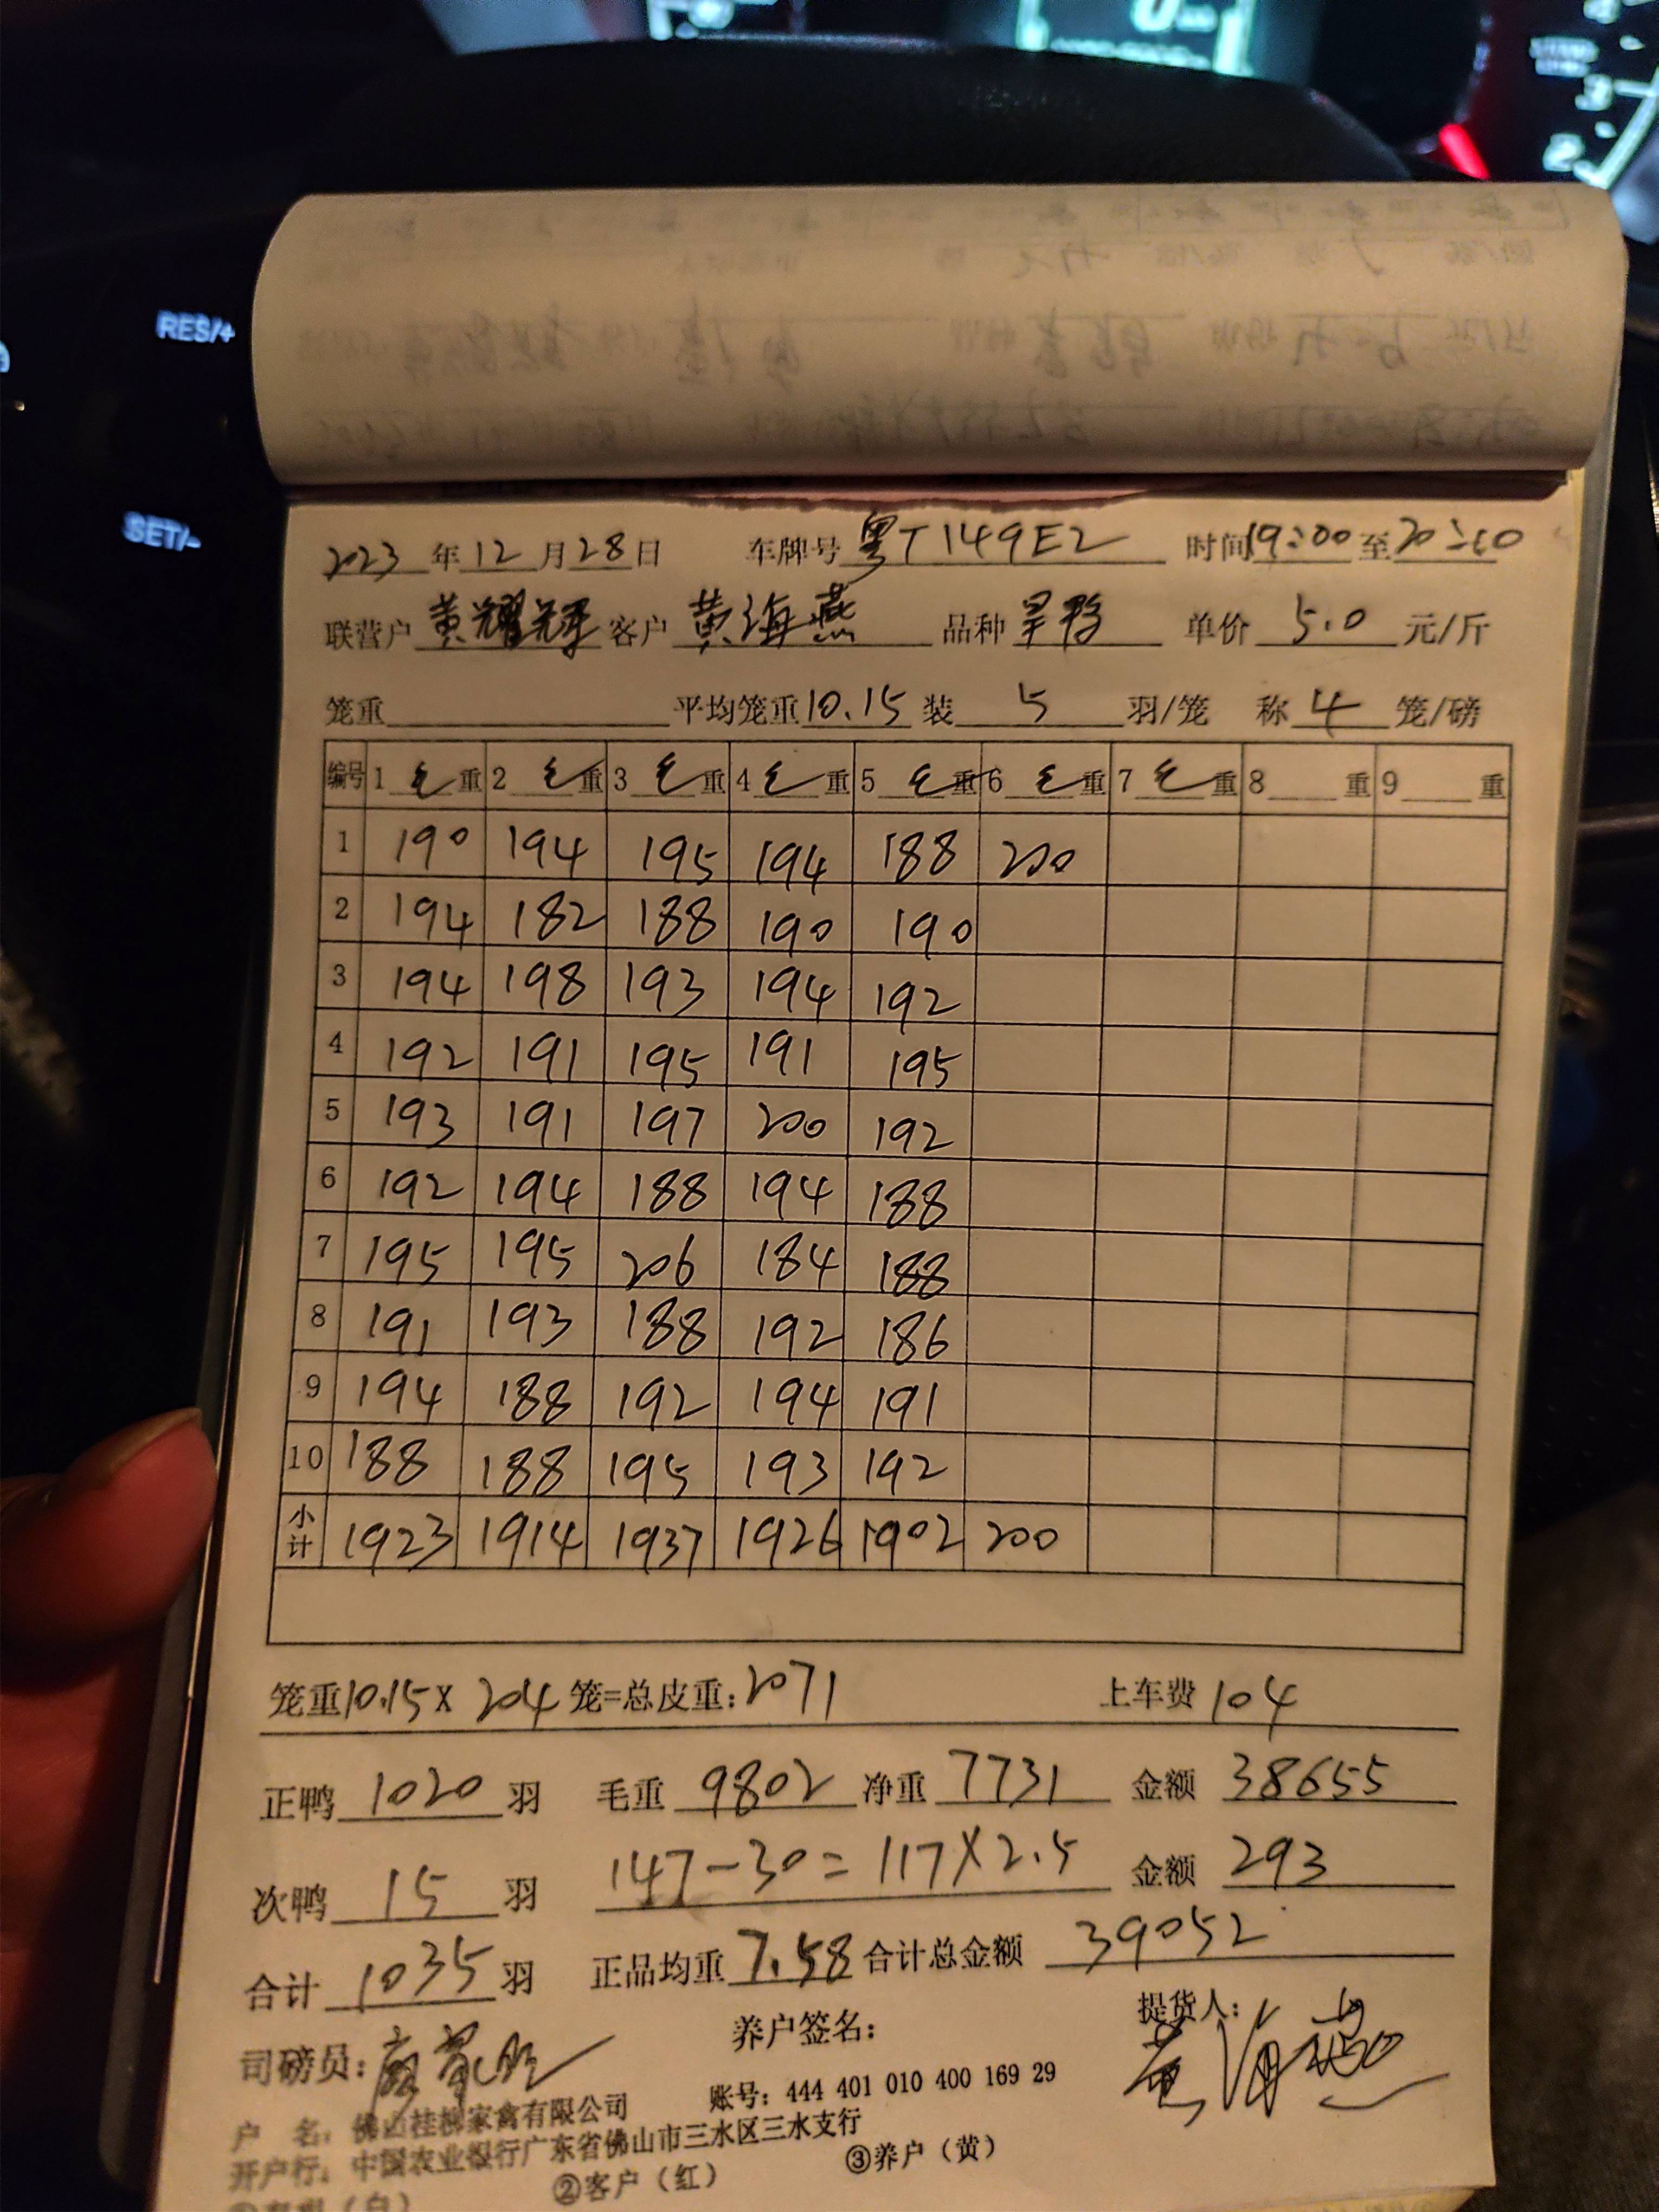 RES/+
SET/-
2023年12月28日 车牌号 粤T149E2 时间19:00至20:10
联营户 黄耀辉 客户 黄海燕 品种 旱鸭 单价 5.0 元/斤
笼重 平均笼重10.15 装 5 羽/笼 称 4 笼/磅
编号 1 毛重 2 毛重 3 毛重 4 毛重 5 毛重 6 毛重 7 毛重 8 重 9 重
1 190 194 195 194 188 200
2 194 182 188 190 190
3 194 198 193 194 192
4 192 191 195 191 195
5 193 191 197 200 192
6 192 194 188 194 188
7 195 195 206 184 188
8 191 193 188 192 186
9 194 188 192 194 191
10 188 188 195 193 192
小计 1923 1914 1937 1926 1902 200
笼重10.15X 204 笼=总皮重:2071 上车费 104
正鸭 1020 羽 毛重 9802 净重 7731 金额 38655
次鸭 15 羽 147-30=117X2.5 金额 293
合计 1035 羽 正品均重 7.58 合计总金额 39052
司磅员: 养户签名: 提货人: 黄海燕
户 名: 佛山桂柳家禽有限公司 账号: 444 401 010 400 169 29
开户行: 中国农业银行广东省佛山市三水区三水支行
②客户(红) ③养户(黄)